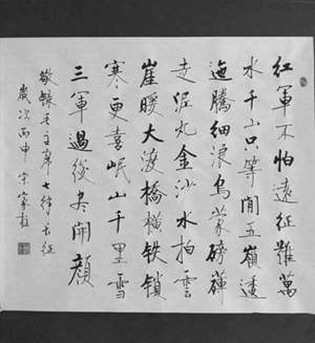 紅軍不怕遠征難萬
水千山只等閒五嶺逶
迤騰細浪烏蒙磅礴
走泥丸金沙水拍雲
崖暖大渡橋橫铁锁
寒更喜岷山千里雪
三軍過後尽開顏
敬錄毛主席七律长征
歲次丙申 宋